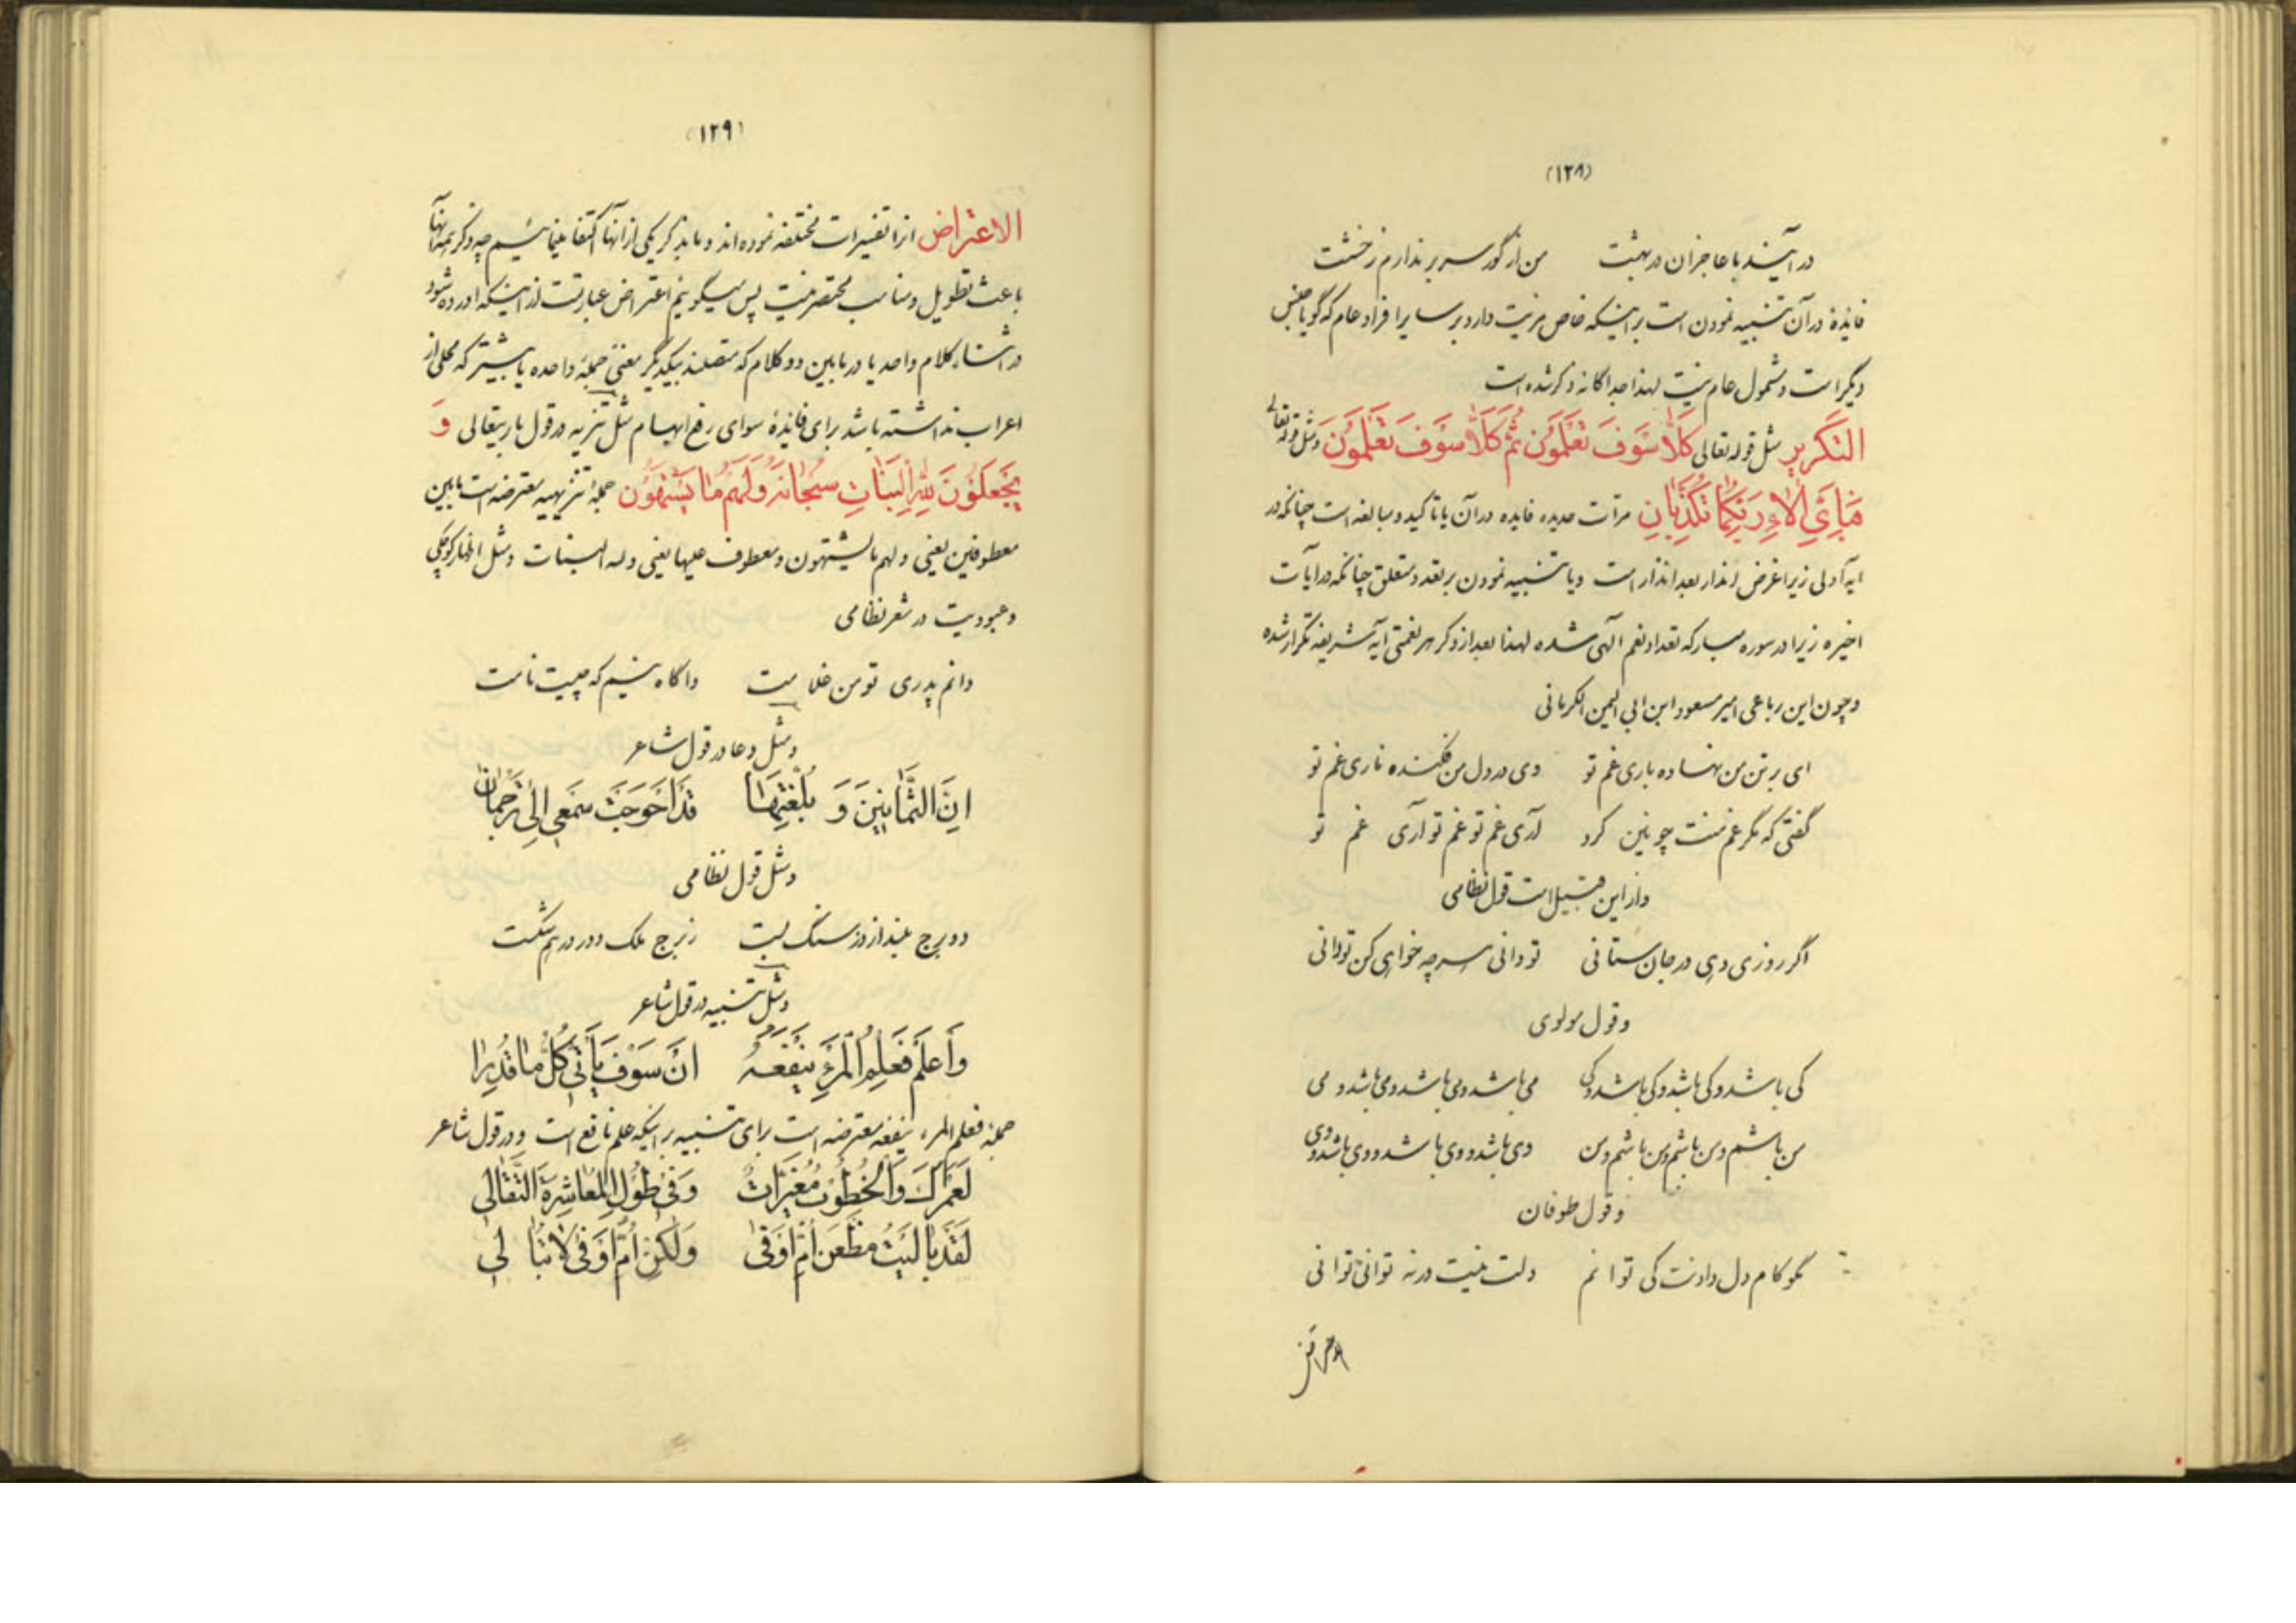 (۱۲۸)
در آیند با عاجزان در بهشت من از گور سر بر ندارم ز خشت
فایدهٔ در آن تنبیه نمودن است بر اینکه خاص مزیت دارد بر سایر افراد عام که گویا جنس
دیگر است و شمول عام نیست لهذا جداگانه ذکر شده است
التکریر مثل قوله تعالی کَلّا سَوْفَ تَعْلَمُونَ ثُمَّ کَلّا سَوْفَ تَعْلَمُونَ و مثل قوله تعالی
فَبِاَیِّ آلاءِ رَبِّکُما تُکَذِّبانِ مرّات عدیده فایده در آن یا تاکید و مبالغه است چنانکه در
ایه اولی زیرا غرض انذار بعد انذار است و یا تنبیه نمودن بر تعدد متعلق چنانکه در آیات
اخیره زیرا در سوره مبارکه تعداد نعم الهی شده لهذا بعد از ذکر هر نعمتی ایه شریفه تکرار شده
و چون این رباعی امیر مسعود ابن ابی الیمن الکرمانی
ای بر تن من نهاده باری غم تو وی در دل من فکنده ناری غم تو
گفتی که مگر غم منت چونین کرد آری غم تو غم تو آری غم تو
و از این قبیل است قول نظامی
اگر روزی دهی در جان ستانی تو دانی هر چه خواهی کن تو دانی
و قول مولوی
کی باشد و کی باشد و کی باشد و کی می باشد و می باشد و می باشد و می
من باشم و من باشم و من باشم و من وی باشد و وی باشد و وی باشد و وی
و قول طوفان
بگو کام دل دادنت کی توانم دلت نیست ورنه توانی توانی
(۱۲۹)
الاعتراض انرا تفسیرات مختلفه نموده اند و ما بذکر یکی از آنها اکتفا مینمائیم چه ذکر همه آنها
باعث تطویل و مناسب مختصر نیست پس میگوئیم اعتراض عبارتست از اینکه اورده شود
در اثناء کلام واحد یا در مابین دو کلام که متصلند بیکدیگر معنی جملهٔ واحده یا بیشتر که محلی از
اعراب نداشته باشد برای فایدهٔ سوای رفع ابهام مثل تنزیه در قول باریتعالی وَ
یَجْعَلُونَ لِلّهِ الْبَناتِ سُبْحانَهُ وَلَهُمْ ما یَشْتَهُونَ جملهٔ تنزیهیه معترضه است مابین
معطوفین یعنی و لهم ما یشتهون و معطوف علیها یعنی و له البنات و مثل اظهار کوچکی
و عبودیت در شعر نظامی
دانم پدری تو من غلامت واگاه نیم که چیست نامت
و مثل دعا در قول شاعر
اِنَّ الثَّمانینَ وَ بُلِّغْتَها قَدْ اَحْوَجَتْ سَمْعی اِلی تَرْجُمان
و مثل قول نظامی
دو برج بلند از دز سنگ بست ز برج ملک دور در هم شکست
و مثل تنبیه در قول شاعر
وَاَعْلَمْ فَعِلْمُ الْمَرْءِ یَنْفَعُهُ اَنْ سَوْفَ یَأْتی کُلُّ ما قُدِرا
جملهٔ فعلم المرء ینفعه معترضه است برای تنبیه بر اینکه علم نافع است و در قول شاعر
لَعَمْرُکَ وَالْخُطُوبُ مُغَیِّراتٌ وَفی طُولِ الْمُعاشِرَةِ التَّقالی
لَقَدْ بالَیْتُ مَظْعَنَ اُمِّ اَوْفی وَلکِنْ اُمُّ اَوْفی لا تُبا لی